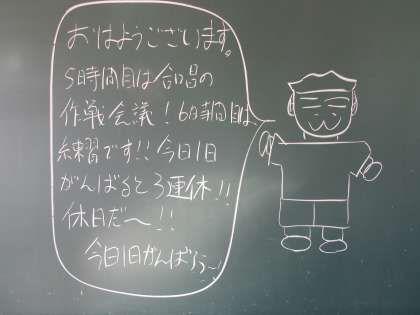 おはようございます。
5時間目は合唱の
作戦会議！6時間目は
練習です!!今日1日
がんばると3連休!!
休日だ〜!!
今日1日がんばろう〜!